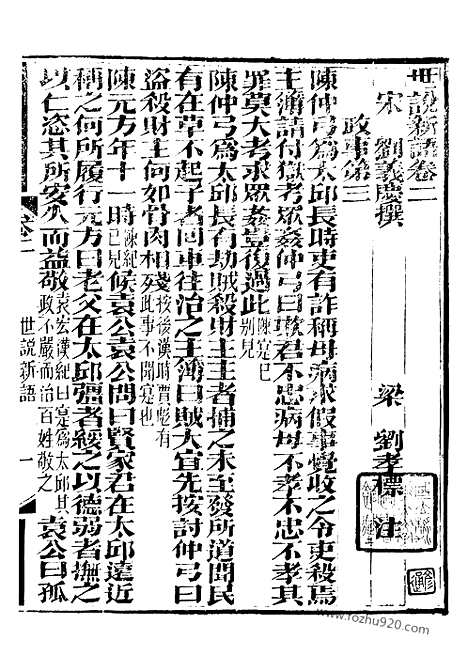 世說新語卷二
宋　劉義慶撰　梁　劉孝標　注
政事第三
陳仲弓爲太丘長時吏有詐稱母病求假事覺收之令吏殺焉
主簿請付獄考眾姦仲弓曰欺君不忠病母不孝不忠不孝其
罪莫大考求眾姦豈復過此陳寔已別見
陳仲弓爲太邱長有劫賊殺財主主者捕之未至發所道聞民
有在草不起子者回車往治之主簿曰賊大宜先按討仲弓曰
盜殺財主何如骨肉相殘按後漢時賈彪有此事不聞寔也
陳元方年十一時陳紀已見候袁公袁公問曰賢家君在太邱遠近
稱之何所履行元方曰老父在太邱彊者綏之以德弱者撫之
以仁恣其所安久而益敬袁宏漢紀曰寔爲太邱其政不嚴而治百姓敬之袁公曰孤
卷二
世說新語
一
www.fozhu920.com